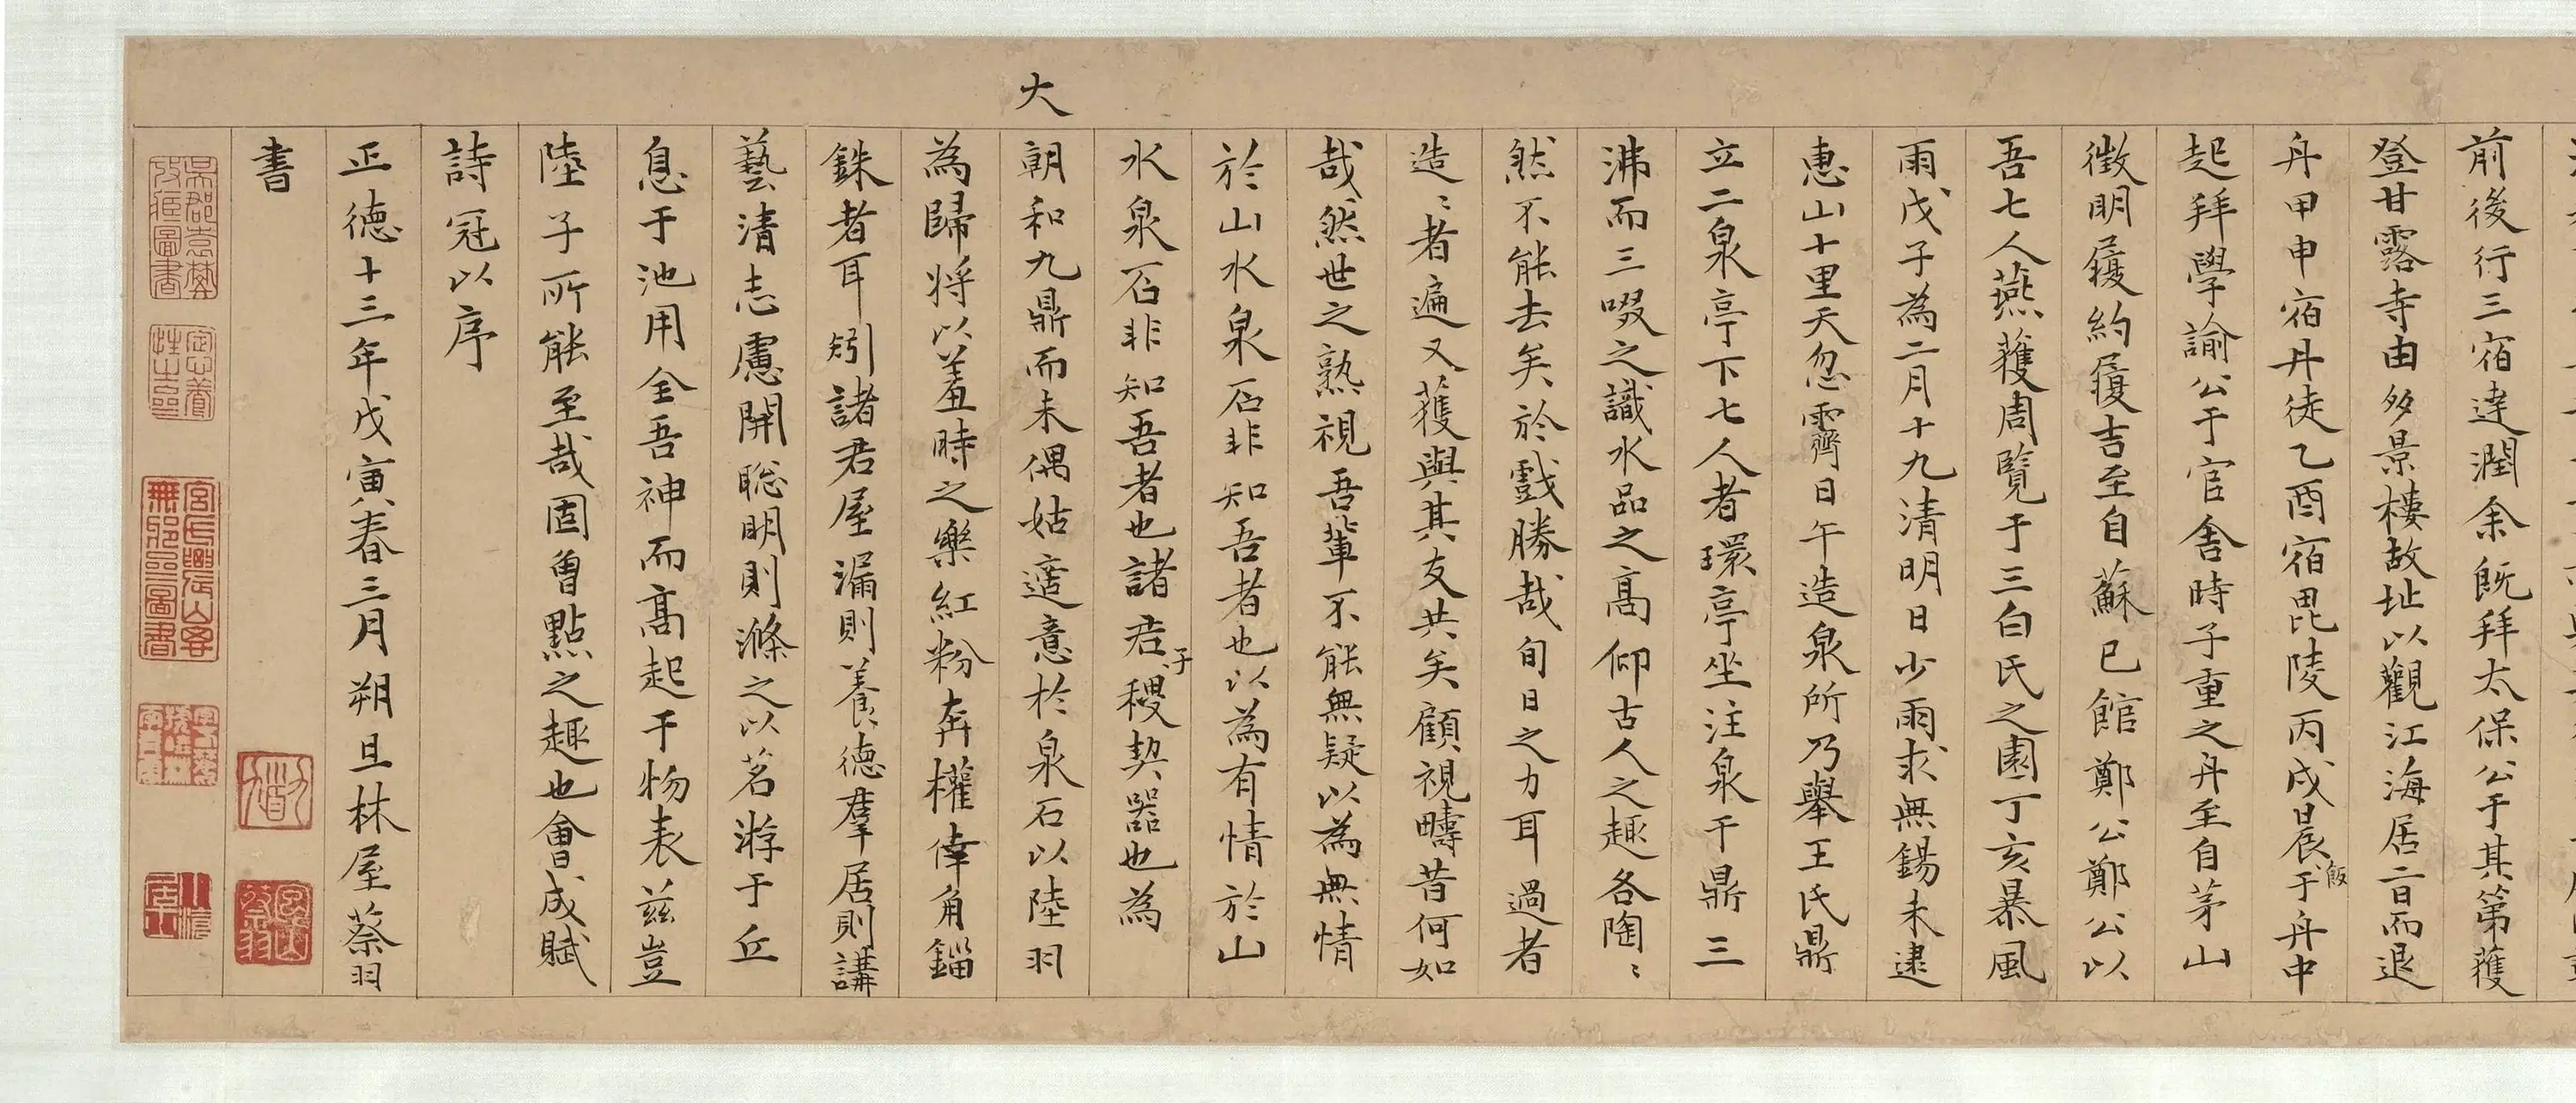 前後行三宿達潤余既拜太保公于其第獲
登甘露寺由多景樓故址以觀江海居二日而退
舟甲申宿丹徒乙酉宿毘陵丙戌晨飯于舟中
起拜學諭公于官舍時子重之丹至自茅山
徵明履約履吉至自蘇已館鄭公鄭公以
吾七人燕獲周覽于三白氏之園丁亥暴風
雨戊子為二月十九清明日少雨求無錫未逮
惠山十里天忽霽日午造泉所乃舉王氏鼎
立二泉亭下七人者環亭坐注泉于鼎三
沸而三啜之識水品之高仰古人之趣各陶〻
然不能去矣於戲勝哉旬日之力耳過者
造〻者遍又獲與其友共矣顧視疇昔何如
哉然世之熟視吾輩不能無疑以為無情
於山水泉石非知吾者也以為有情於山
水泉石非知吾者也諸君子稷契器也為
大
朝和九鼎而未偶姑適意於泉石以陸羽
為歸將以羞時之樂紅粉奔權倖角錙
銖者耳矧諸君屋漏則養德羣居則講
藝清志慮開聰明則滌之以茗游于丘
息于池用全吾神而高起于物表茲豈
陸子所能至哉固曾點之趣也會成賦
詩冠以序
正德十三年戊寅春三月朔旦林屋蔡羽
書